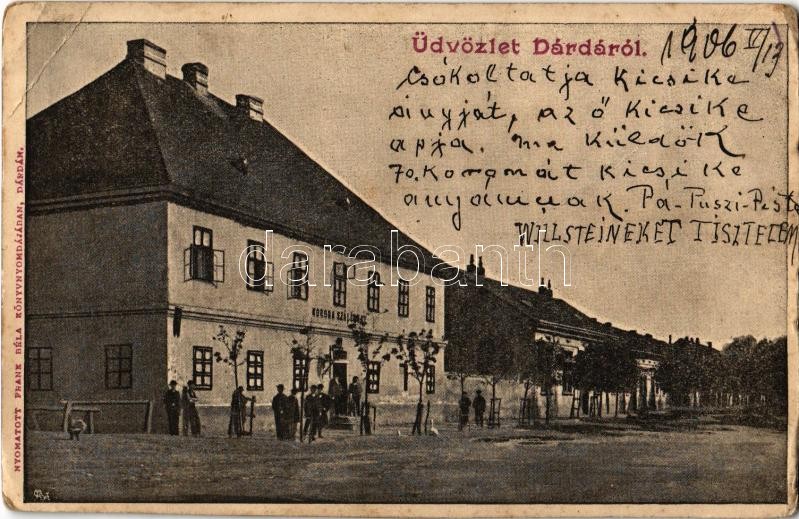 Üdvözlet Dárdáról.
1906 II/13
Csókoltatja Kicsike
anyját, az ő Kicsike
apja. ma küldök
70. Koronát Kicsike
anyámnak. Pá-Puszi-Pista
WALSTEINEKET TISZTELEM
darabanth
KORONA SZÁLLODA
NYOMATOTT FRANK BÉLA KÖNYVNYOMDÁJÁBAN, DÁRDÁN.